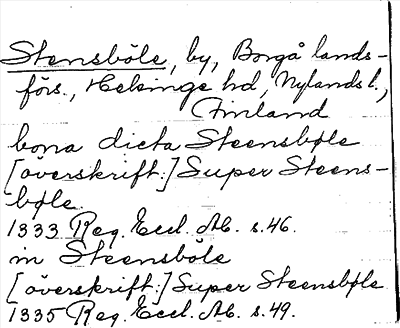 Stensböle, by, Borgå lands-
förs., Helsinge hd, Nylands l.,
Finland
bona dicta Steensbøle
[överskrift:] Super Steens-
bøle.
1333 Reg. Eccl. Ab. s.46.
in Steensböle
[överskrift:] Super Steensbøle
1335 Reg. Eccl. Ab. s.49.